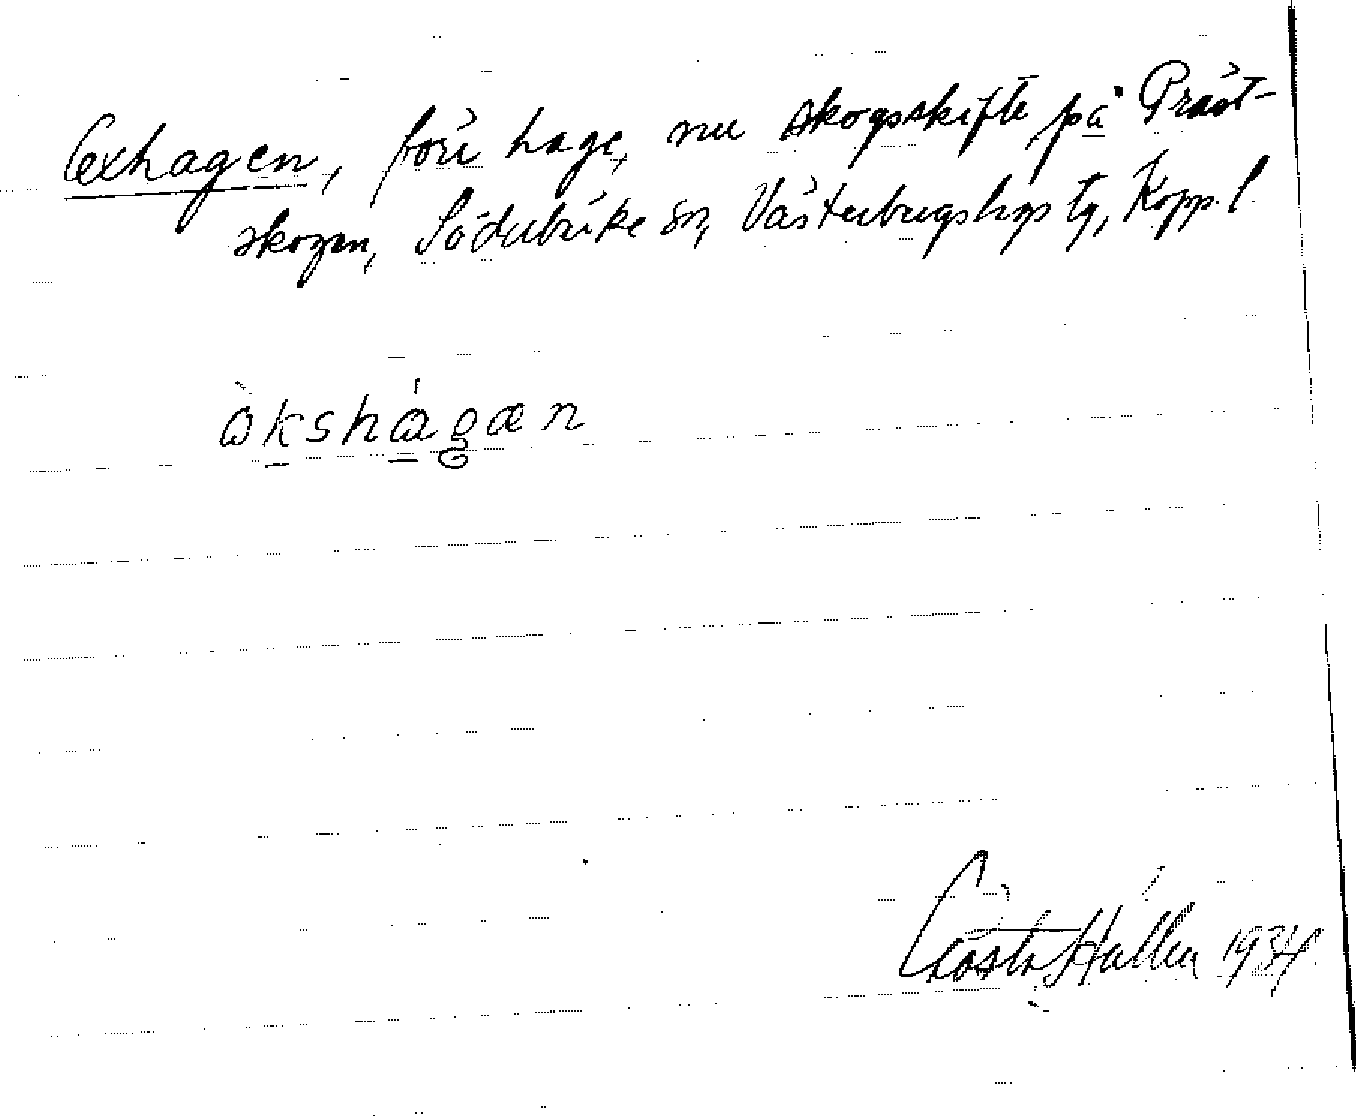 Oxhagen, förr hage, nu skogsskifte på Präst-
skogen, Söderbärke sn, Västerbergslags tg, Kopp. l.
òkshágæn
Gösta Hallen 1934